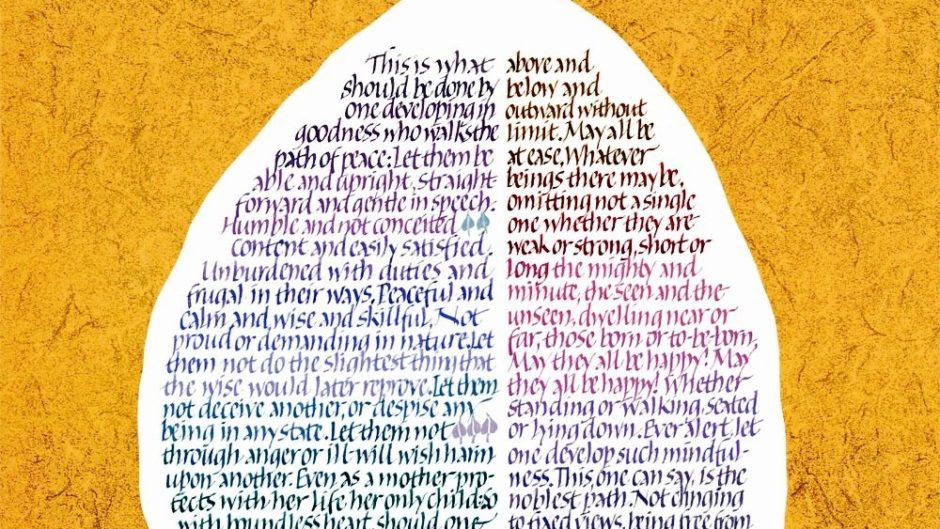 This is what
should be done by
one developing in
goodness who walks the
path of peace: Let them be
able and upright, straight
forward and gentle in speech.
Humble and not conceited
content and easily satisfied.
Unburdened with duties and
frugal in their ways. Peaceful and
calm and wise and skillful, Not
proud or demanding in nature. Let
them not do the slightest thing that
the wise would later reprove. Let them
not deceive another, or despise any
being in any state. Let them not
through anger or ill-will wish harm
upon another. Even as a mother pro-
tects with her life her only child: so
with boundless heart should one
above and
below and
outward without
limit. May all be
at ease. Whatever
beings there may be,
omitting not a single
one whether they are
weak or strong, short or
long the mighty and
minute, the seen and the
unseen, dwelling near or
far, those born or to-be-born,
May they all be happy! May
they all be happy! Whether
standing or walking, seated
or lying down. Ever alert, let
one develop such mindful-
ness. This, one can say, is the
noblest path. Not clinging
to fixed views, being free from